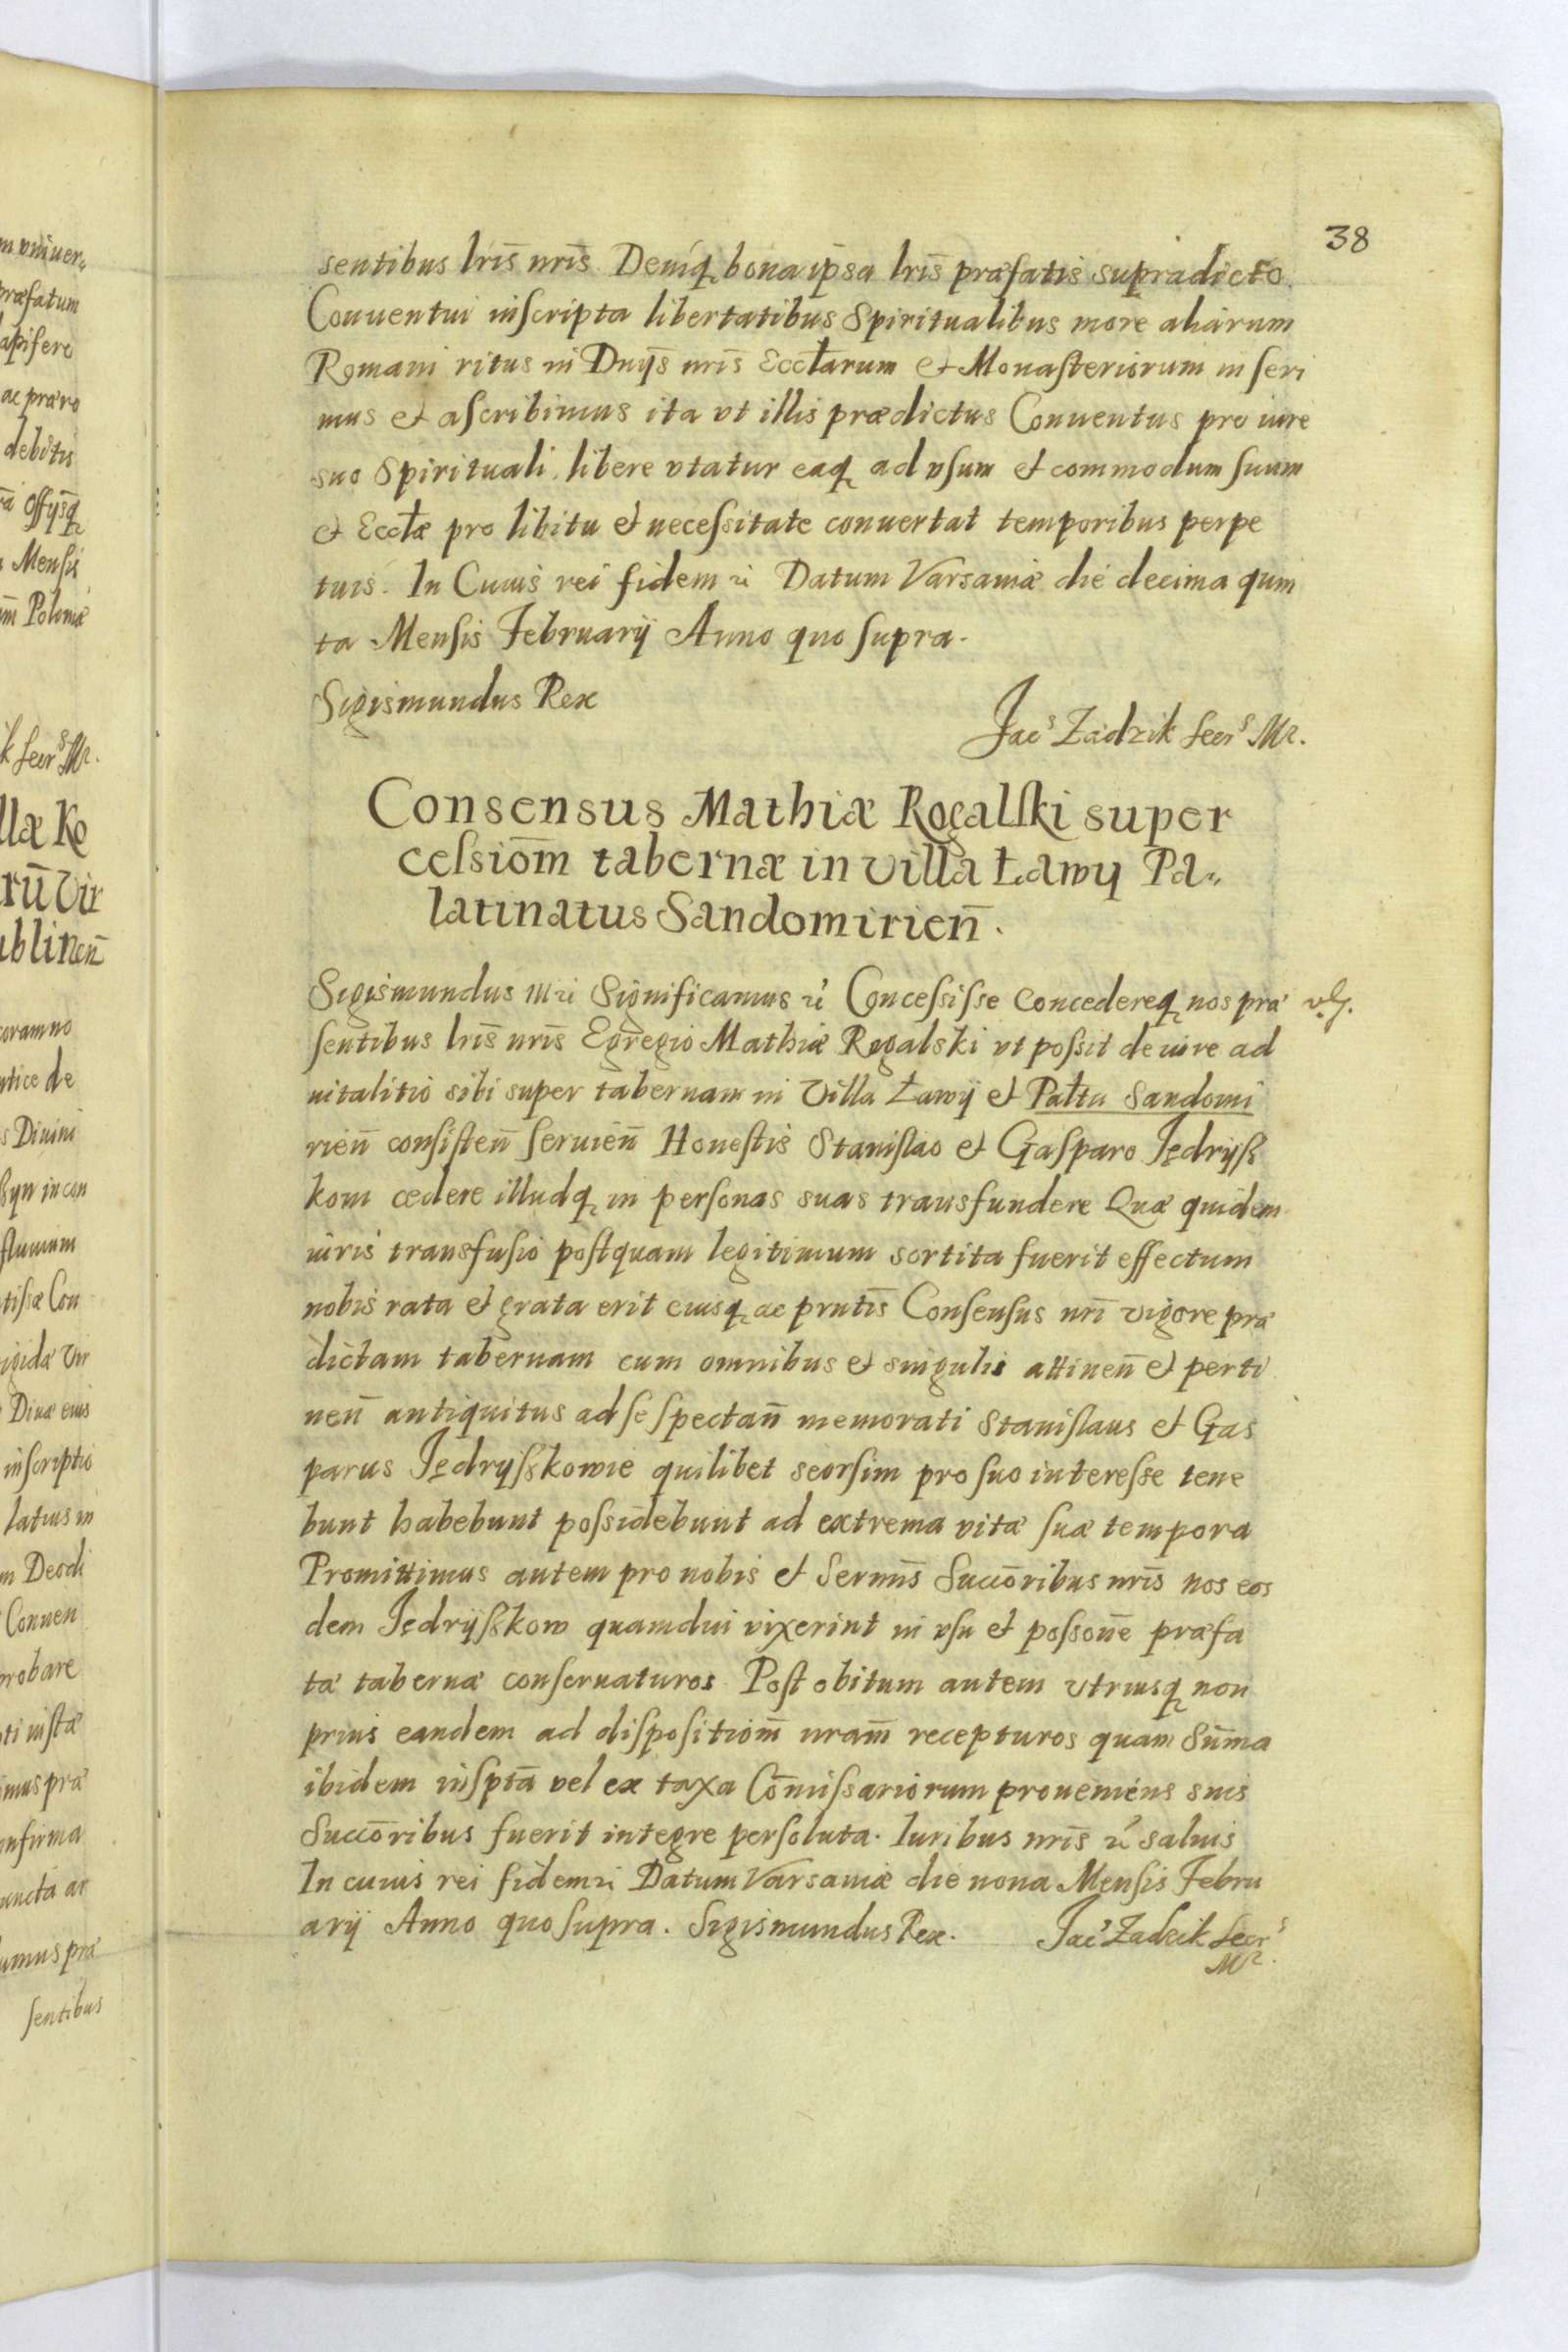 38
sentibus lris̄ nris̄ Deniq̨ bona ip̄sa lris̄ præfatis supradicto
Conuentui inscripta libertatibus Spiritualibus more aliarum
Romani ritus in Dnijs̄ nris̄ Eccłarum et Monasteriorum inseri
mus et ascribimus ita vt illis prædictus Conuentus pro iure
suo Spirituali libere vtatur eaq̨ ad vsum et commodum suum
et Eccłæ pro libitu et necessitate conuertat temporibus perpe
tuis. In Cuius rei fidem ꝛċ Datum Varsauiæ die decima quin
ta Mensis Februarij Anno quo supra.
Sigismundus Rex
Jacˢ Zadzik Secrˢ Mr.
Consensus Mathiæ Rogalski super
cessiom̄ tabernæ in villa Ławy Pa„
latinatus Sandomirien̄.
Sigismundus IIIꝛċ Significamus ꝛċ Concessisse Concedereq̨ nos præ
sentibus lris̄ nris̄ Egregio Mathiæ Rogalski vt possit de iure ad
uitalitio sibi super tabernam in Villa Ławij et Pałtu Sandomi
rien̄ consisten̄ seruien̄ Honestis Stanislao et Gasparo Jędrijsz
kom cedere illudq̨ in personas suas transfundere Quæ quidem
iuris transfusio postquam legitimum sortita fuerit effectum
nobis rata et grata erit eiusq̨ ac prntis̄ Consensus nri̅ vigore præ
dictam tabernam cum omnibus et singulis attinen̄ et perti
nen̄ antiquitus ad se spectan̄ memorati Stanislaus et Gas
parus Jędryszkowie quilibet seorsim pro suo interesse tene
bunt habebunt possidebunt ad extrema vitæ suæ tempora
Promittimus autem pro nobis et Sermis̄ Succōribus nris̄ nos eos
dem Jędrijszkow quamdiu vixerint in vsu et posson̄e præfa
tæ tabernæ conseruaturos Post obitum autem vtriusq̨ non
prius eandem ad dispositiom̄ nram̄ recepturos quam Sum̄a
ibidem insptā vel ex taxa Com̄issariorum proueniens suis
Succōribus fuerit integre persoluta. Iuribus nris̄ ꝛċ saluis
In cuius rei fidem ꝛċ Datum Varsauiæ die nona Mensis Febru
arij Anno quo supra. Sigismundus Rex. Jacˢ Zadzik Secrˢ
Mr.